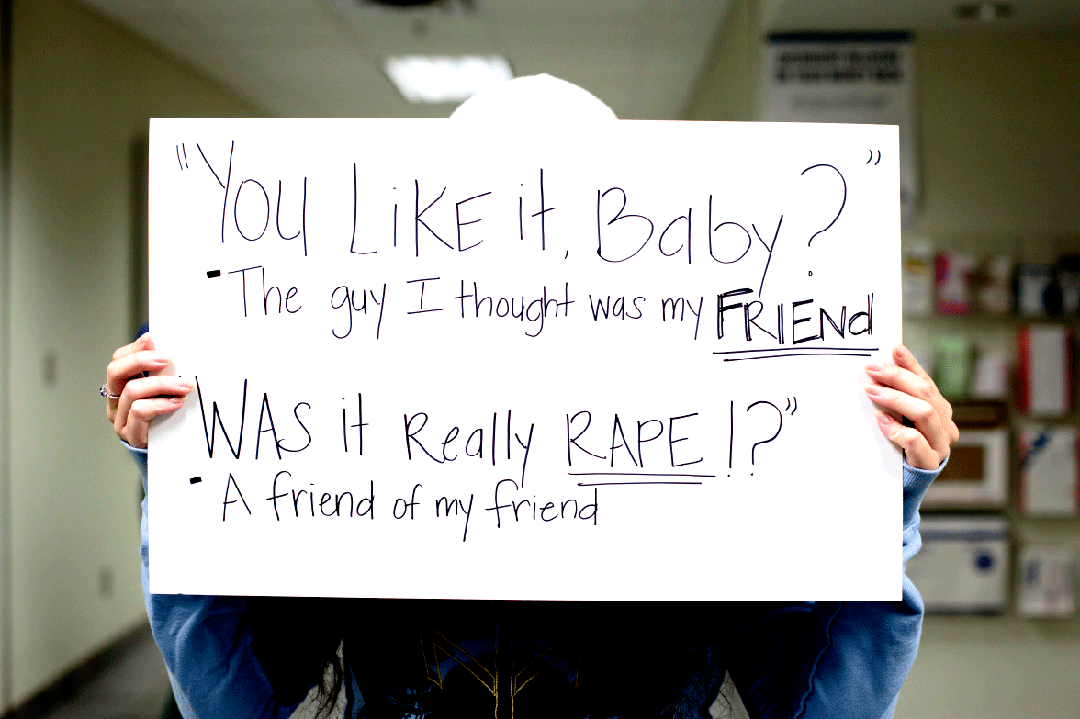 "You Like it, Baby?"
- The guy I thought was my FRIENd
"WAS it Really RAPE!?"
- A friend of my friend